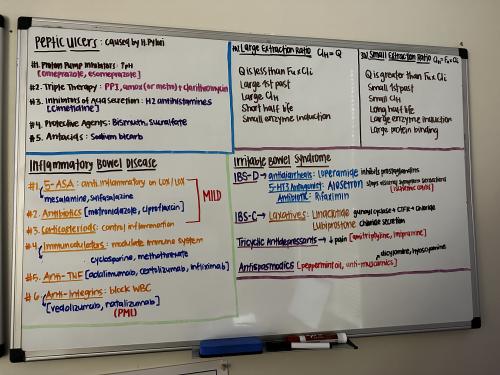 Peptic Ulcers : caused by H.Pylori
#1. Proton Pump Inhibitors: ↑pH
[omeprazole, esomeprazole]
#2. Triple Therapy : PPI, amox (or metro) + clarithromycin
#3. Inhibitors of Acid Secretion : H2 antihistamines
[cimetidine]
#4. Protective Agents: Bismuth, sucralfate
#5. Antacids: Sodium bicarb
Large Extraction Ratio ClH = Q
Q is less than Fu x Cli
Large 1st past
Large ClH
Short half life
Small enzyme induction
Small Extraction Ratio ClH = Fu x Cli
Q is greater than Fu x Cli
Small 1st past
Small ClH
Long half life
Large enzyme induction
Large protein binding
Inflammatory Bowel Disease
#1. 5-ASA : anti inflammatory on COX/LOX
mesalamine, sulfasalazine
#2. Antibiotics [metronidazole, ciprofloxacin]
MILD
#3. Corticosteroids: control inflammation
#4. Immunodulators: modulate immune system
cyclosporine, methotrexate
#5. Anti-TNF [adalimumab, certolizumab, infliximab]
#6. Anti-Integrins: block WBC
[vedolizumab, natalizumab]
(PML)
Irritable Bowel Syndrome
IBS-D → antidiarrheals: Loperamide inhibits prostaglandins
5-HT3 Antagonist: Alosetron stops sensory sensations
[ischemic colitis]
Antibiotic: Rifaximin
IBS-C → Laxatives: Linaclotide guanyl cyclase + CFTR + chloride
Lubiprostone chloride secretion
Tricyclic Antidepressants → ↓ pain [amitriptyline, imipramine]
dicyclomine, hyoscyamine
Antispasmodics [peppermint oil, anti-muscarinics]